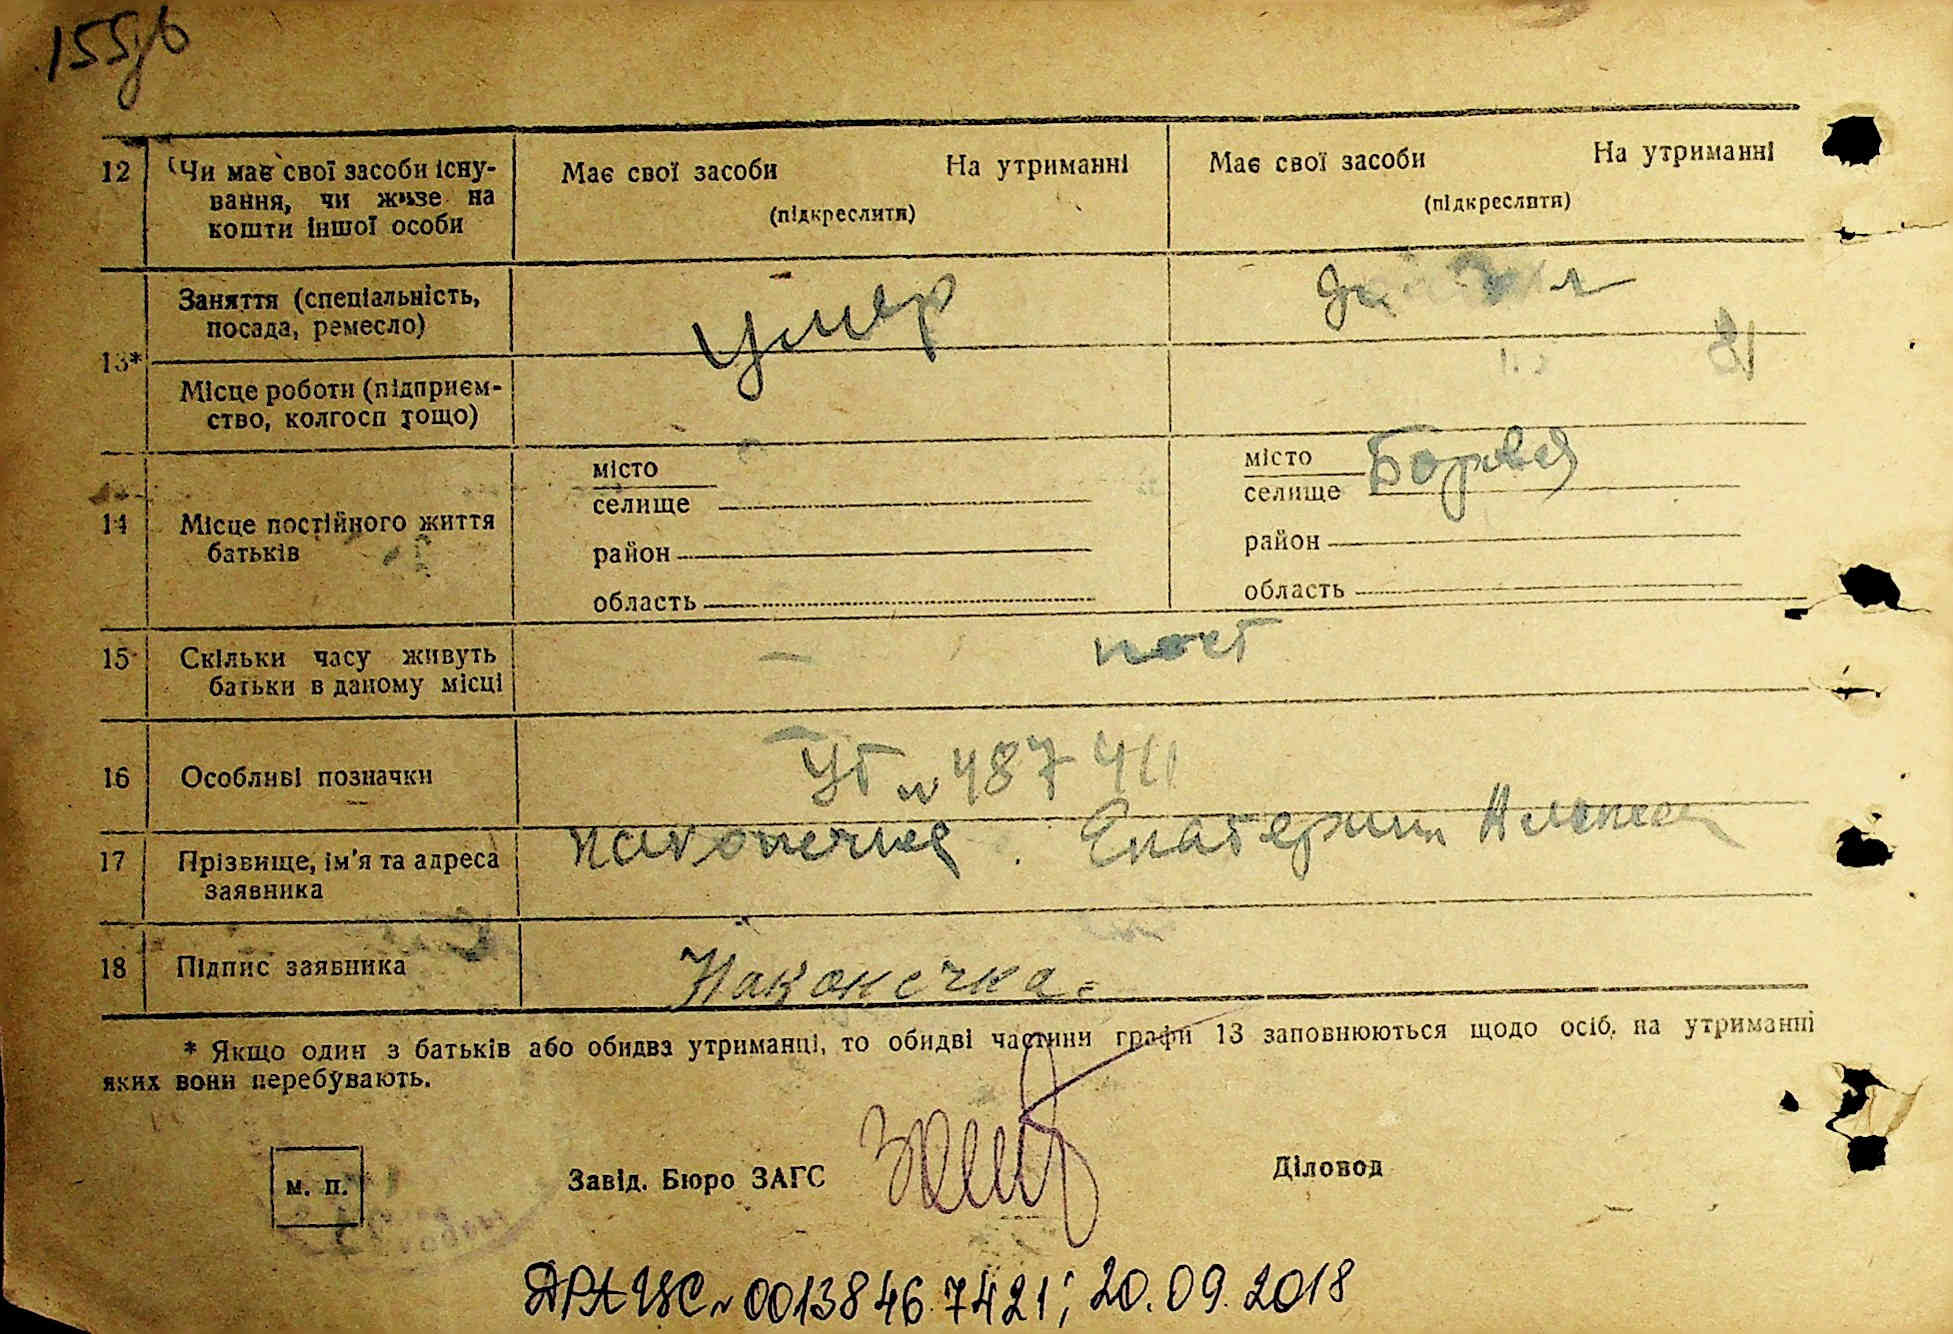 155зв
12 Чи має свої засоби існу-
вання, чи живе на
кошти іншої особи
Має свої засоби На утриманні
(підкреслити)
Має свої засоби На утриманні
(підкреслити)
13*
Заняття (спеціальність,
посада, ремесло)
умер
Місце роботи (підприєм-
ство, колгосп тощо)
14 Місце постійного життя
батьків
місто
селище
район
область
місто
селище Боровая
район
область
15 Скільки часу живуть
батьки в даному місці
— пост
16 Особливі позначки
17 Прізвище, ім'я та адреса
заявника
Наконечная Екатерина
18 Підпис заявника
Наконечна
* Якщо один з батьків або обидва утриманці, то обидві частини графи 13 заповнюються щодо осіб, на утриманні
яких вони перебувають.
м. п.
Завід. Бюро ЗАГС
Діловод
ДРАЦС № 00138467421; 20.09.2018